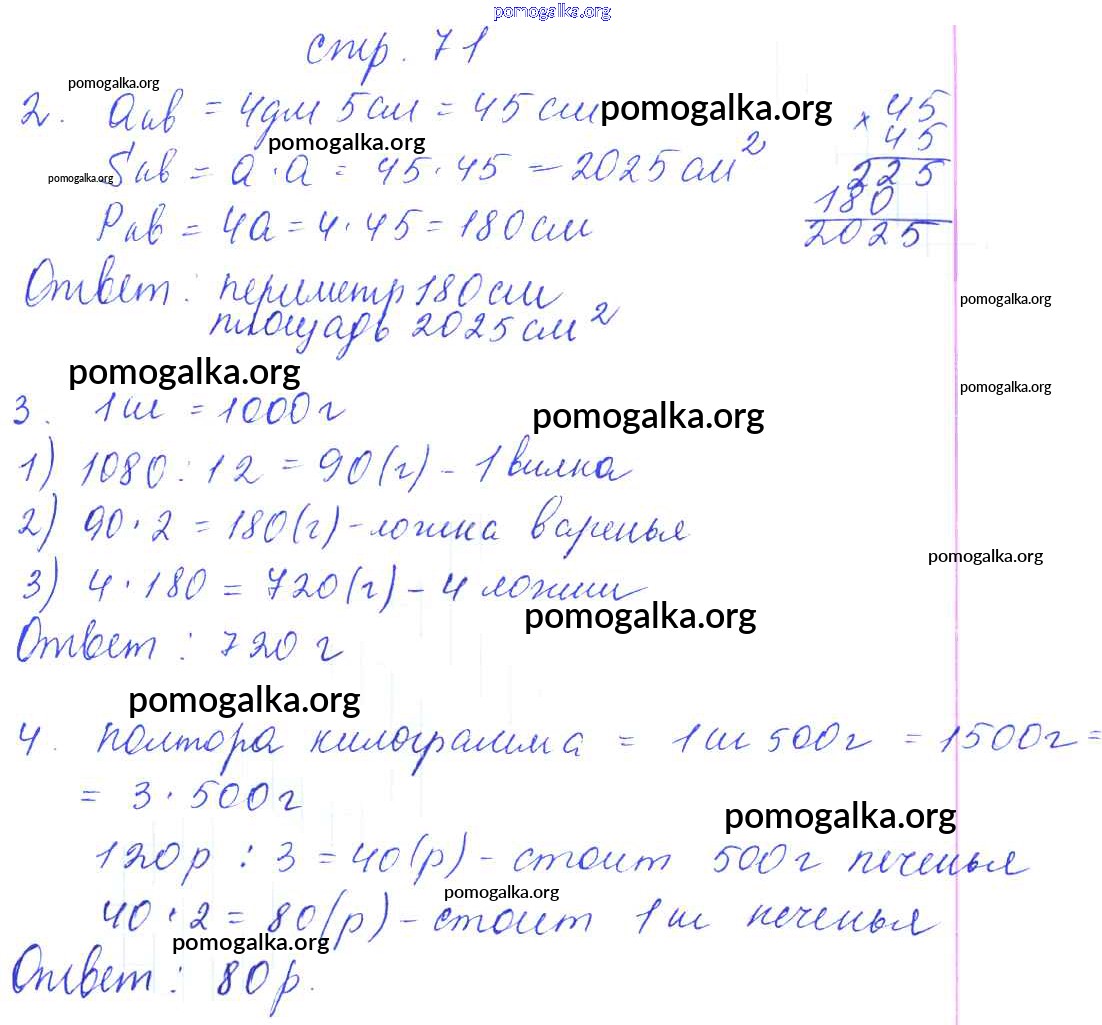 pomogalka.org
стр. 71
pomogalka.org
2. aкв = 4дм 5см = 45 см pomogalka.org
× 45
45
225
180
2025
pomogalka.org
Sкв = a · a = 45 · 45 = 2025 см²
pomogalka.org
Pкв = 4a = 4 · 45 = 180 см
Ответ : периметр 180 см
площадь 2025 см²
pomogalka.org
pomogalka.org
pomogalka.org
3. 1 кг = 1000 г
pomogalka.org
1) 1080 : 12 = 90 (г) - 1 вилка
2) 90 · 2 = 180 (г) - ложка варенья
pomogalka.org
3) 4 · 180 = 720 (г) - 4 ложки
pomogalka.org
Ответ : 720 г
pomogalka.org
4. Полтора килограмма = 1 кг 500 г = 1500 г =
= 3 · 500 г
pomogalka.org
120 р : 3 = 40 (р) - стоит 500 г печенья
pomogalka.org
40 · 2 = 80 (р) - стоит 1 кг печенья
pomogalka.org
Ответ : 80 р.